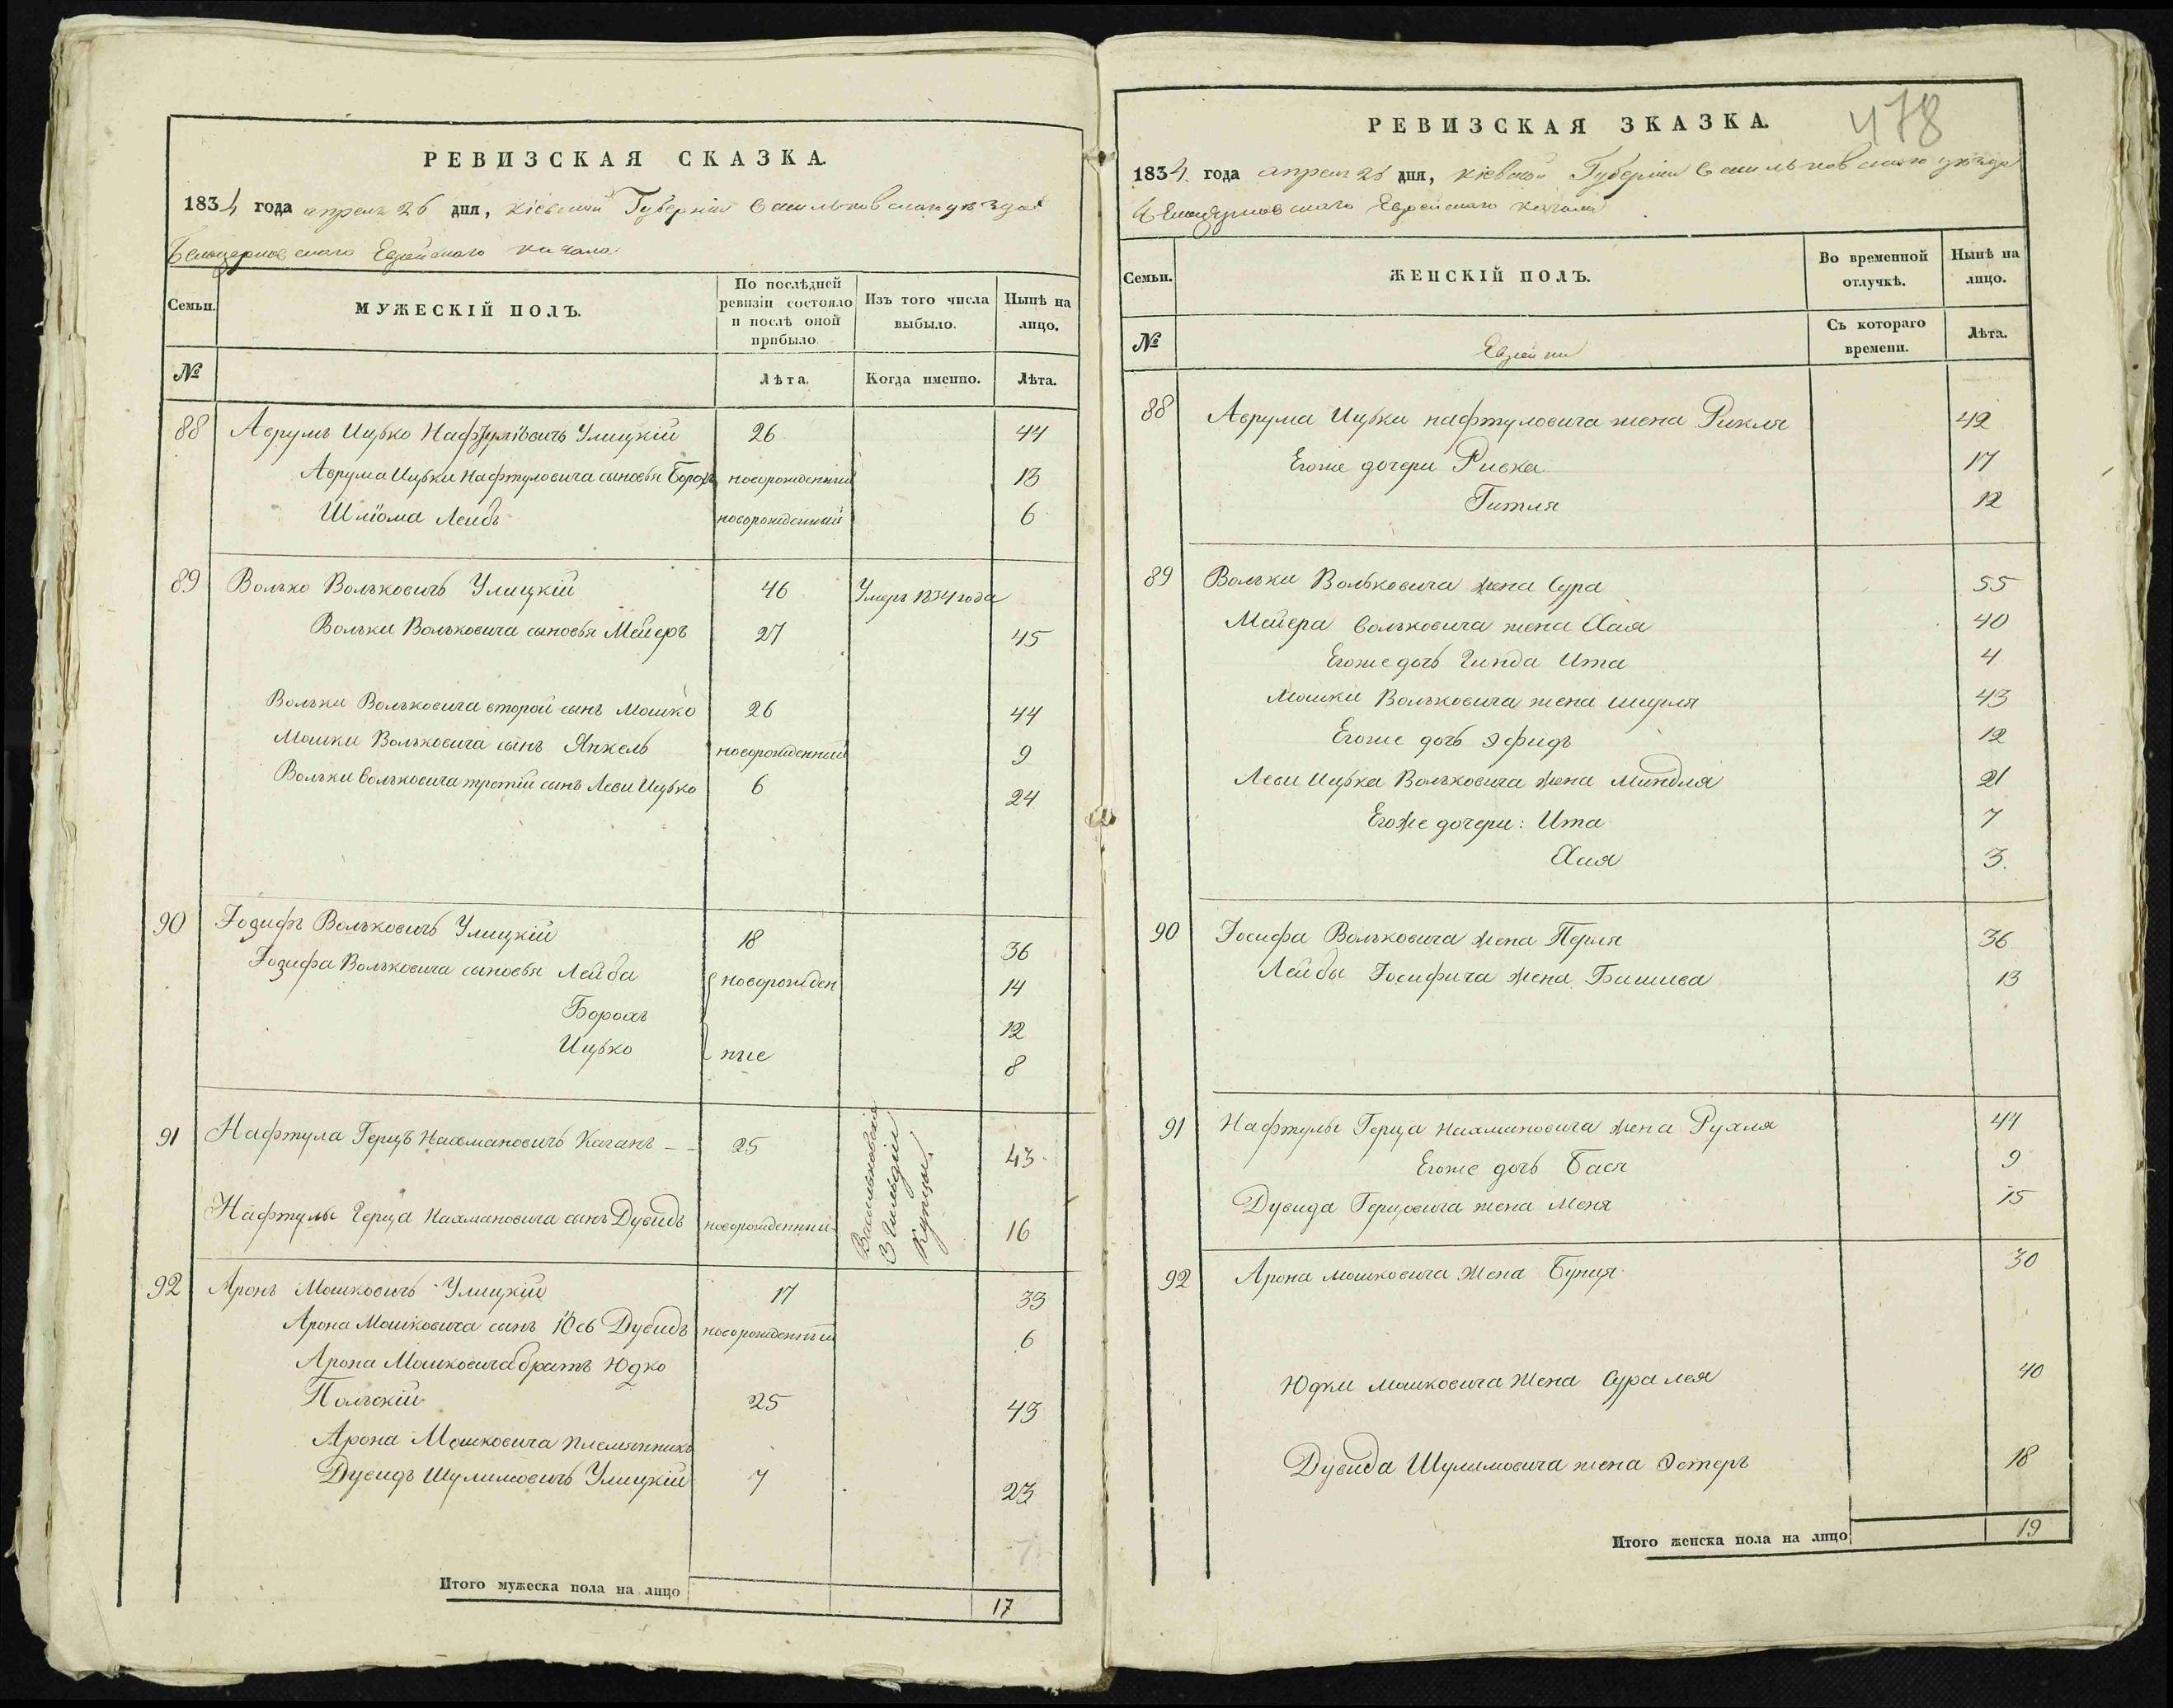 РЕВИЗСКАЯ СКАЗКА.
1834 года апреля 26 дня, Кіевской Губерніи Васильковскаго уѣзда
Бѣлоцерковскаго Еврейскаго Кагала.
Семьи.
МУЖЕСКІЙ ПОЛЪ.
По послѣдней ревизіи состояло и послѣ оной прибыло
Изъ того числа выбыло.
Нынѣ на лицо.
№
Лѣта.
Когда именно.
Лѣта.
88 Аврумъ Ицько Нафтуліовичъ Улицкій 26 44
Аврума Ицьки Нафтуловича сыновья Борохъ новорожденный 13
Шліома Леибъ новорожденный 6
89 Волько Вольковичъ Улицкій 46 Умеръ 1834 года
Вольки Вольковича сыновья Мейеръ 27 45
Вольки Вольковича второй сынъ Мошко 26 44
Мошки Вольковича сынъ Янкель новорожденный 9
Вольки Вольковича третій сынъ Леви Ицько 6 24
90 Іозифъ Вольковичъ Улицкій 18 36
Іозифа Вольковича сыновья Лейба новорожден 14
Борохъ 12
Ицько ные 8
91 Нафтула Герцъ Нахмановичъ Каганъ - - 25 43
Нафтулы Герца Нахмановича сынъ Дувидъ новорожденный 16
Васильковскіе
3 Гильдіи
Купцы.
92 Аронъ Мошковичъ Улицкій 17 33
Арона Мошковича сынъ Юсь Дувидъ новорожденный 6
Арона Мошковича братъ Юдко
Польскій 25 43
Арона Мошковича племянникъ
Дувидъ Шулимовичъ Улицкій 7 23
Итого мужеска пола на лицо 17
478
РЕВИЗСКАЯ ЗКАЗКА.
1834 года апреля 26 дня, Кіевской Губерніи Васильковскаго уѣзда
Бѣлоцерковскаго Еврейскаго Кагала
Семьи.
ЖЕНСКІЙ ПОЛЪ.
Во временной отлучкѣ.
Нынѣ на лицо.
№
Еврейки
Съ котораго времени.
Лѣта.
88 Аврума Ицьки нафтуловича жена Рикля 42
Егоже дочери Ривка 17
Гитля 12
89 Вольки Вольковича жена Сура 55
Мейера Вольковича жена Хая 40
Егоже дочь Гинда Ита 4
Мошки Вольковича жена шифля 43
Егоже дочь Эфидъ 12
Леви Ицька Вольковича жена Миндля 21
Егоже дочери: Ита 7
Хая 3.
90 Іосифа Вольковича жена Перля 36
Лейбы Іосифича жена Башива 13
91 Нафтулы Герца Нахмановича жена Рухля 44
Егоже дочь Бася 9
Дувида Герцовича жена Меня 15
92 Арона Мошковича жена Буния 30
Юдки Мошковича жена Сура лея 40
Дувида Шулимовича жена Эстеръ 18
Итого женска пола на лицо 19